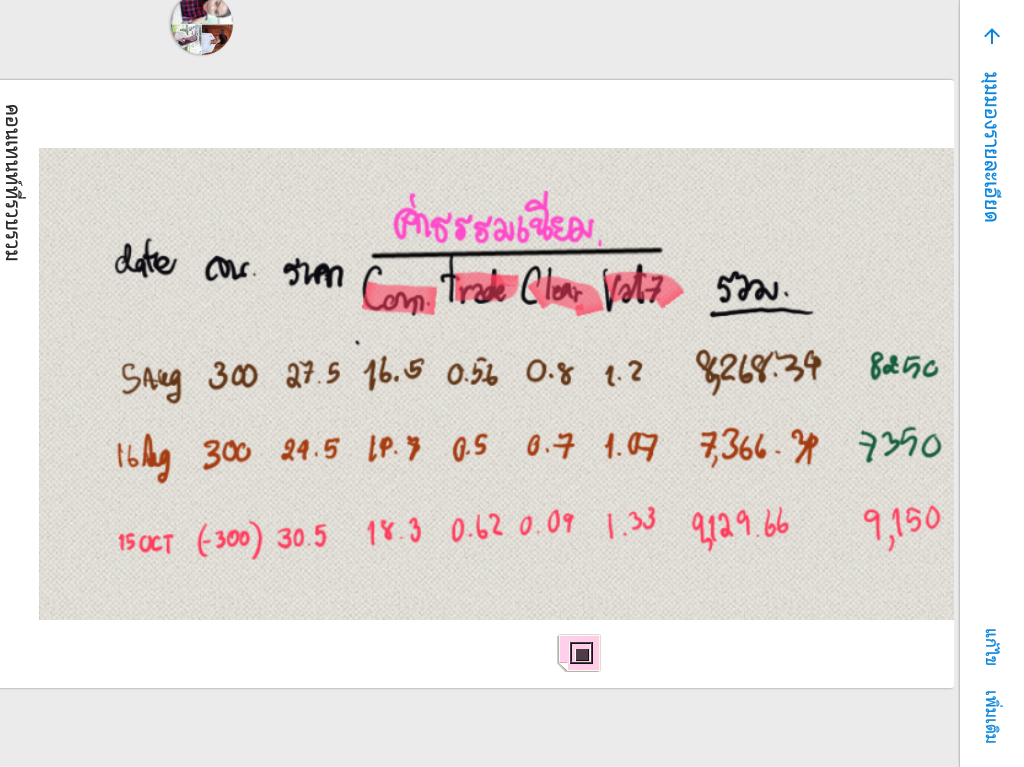 มุมมองรายละเอียด
แก้ไข เพิ่มเติม
คอนเทนท์ที่รวบรวม
ค่าธรรมเนียม
date จน. ราคา Com. Trade Clear Vat7 รวม.
5Aug 300 27.5 16.5 0.56 0.8 1.2 8,268.39 8250
16Aug 300 24.5 0.5 0.7 1.07 7350
15 OCT (-300) 30.5 18.3 0.62 0.09 1.33 9,129.66 9,150